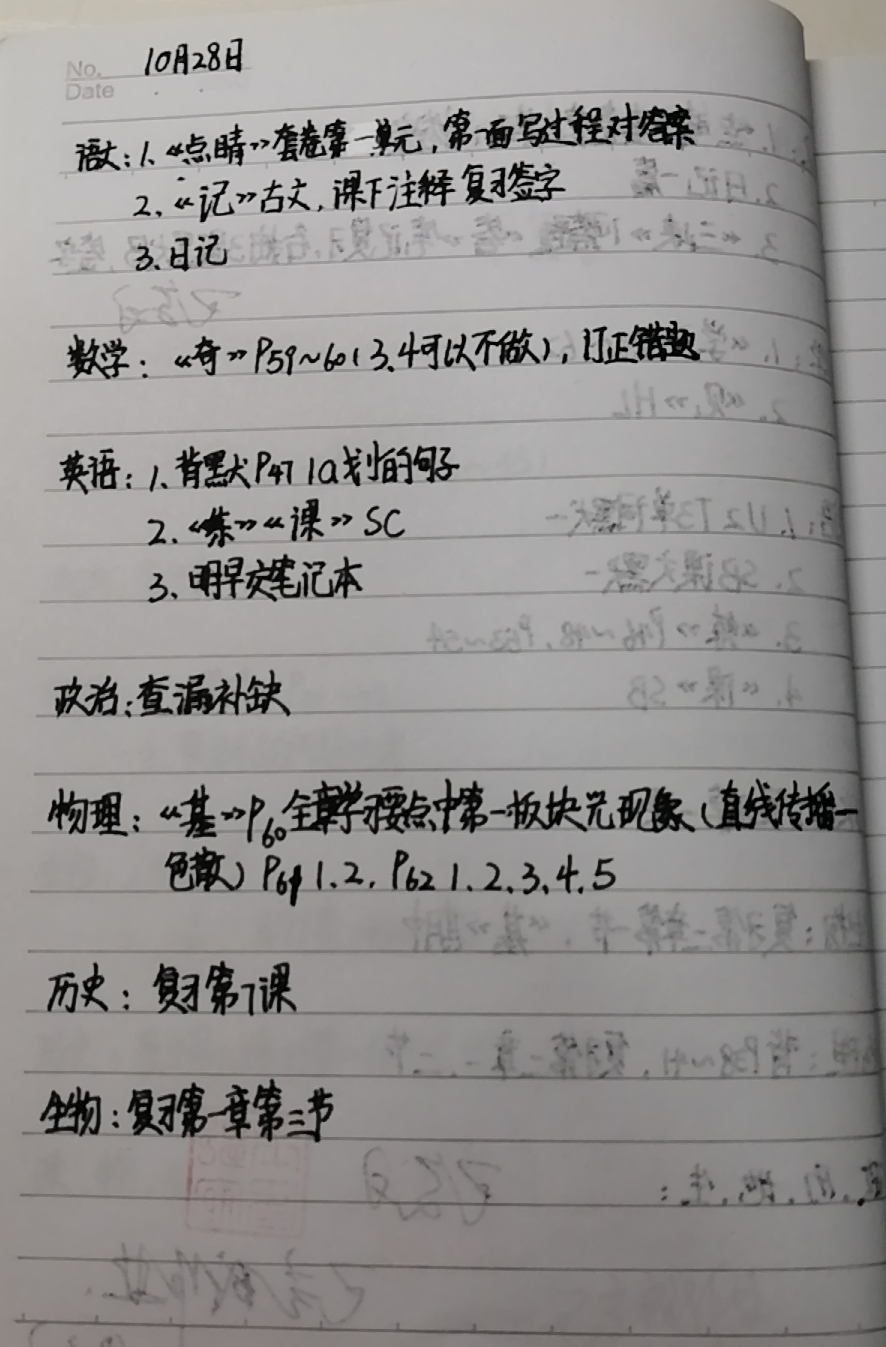 No. 10月28日
Date
语文:1、《点睛》套卷第一单元,第一面写过程对答案
2、《记》古文,课下注释复习签字
3、日记
数学:《奇》P59~60(3、4可以不做),订正错题
英语:1、背默P47 1a划的句子
2、《练》《课》SC
3、明早交笔记本
政治:查漏补缺
物理:《基》P60全章学习要点中第一板块光现象(直线传播—
色散)P61 1.2,P62 1、2、3、4、5
历史:复习第7课
生物:复习第一章第三节